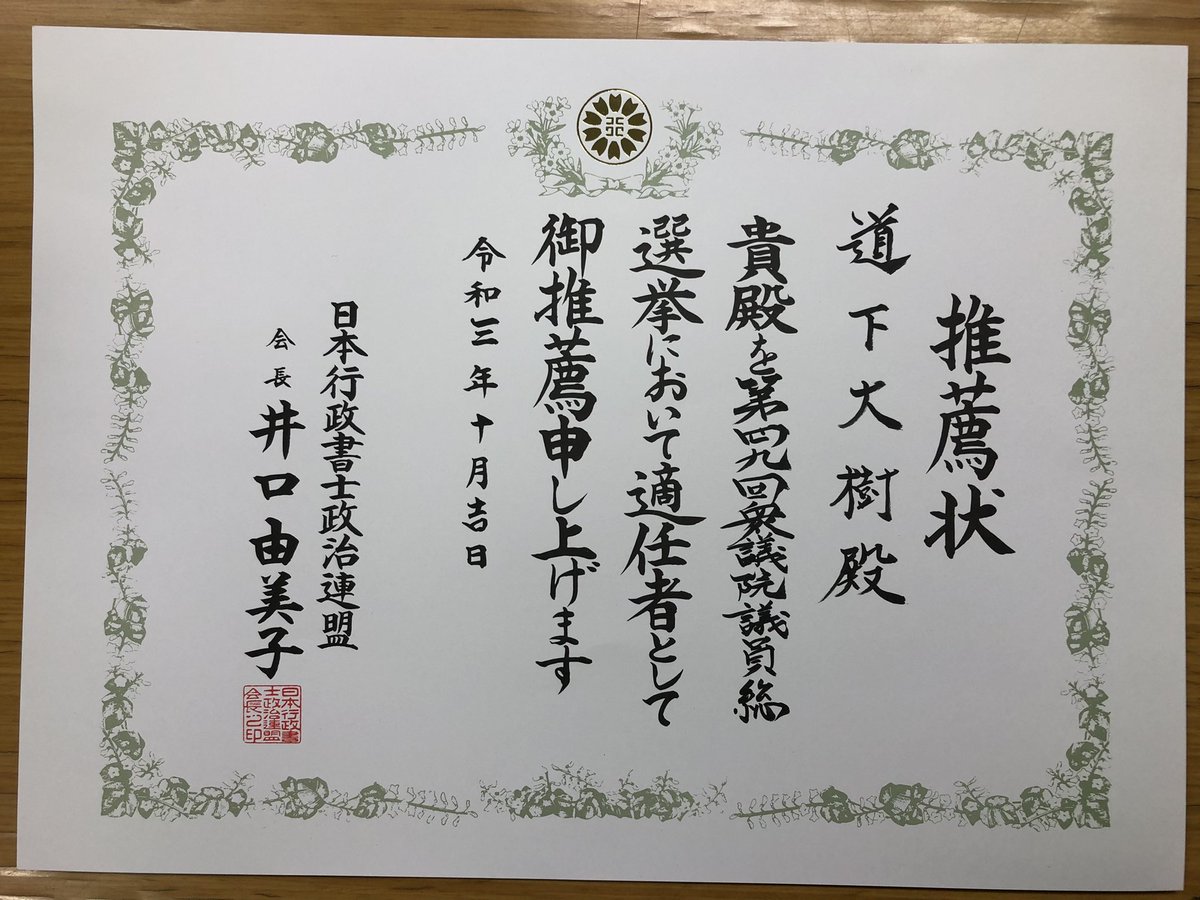 推薦状
道下大樹殿
貴殿を第四九回衆議院議員総
選挙において適任者として
御推薦申し上げます
令和三年十月吉日
日本行政書士政治連盟
会長 井口由美子
日本行政書
士政治連盟
会長之印